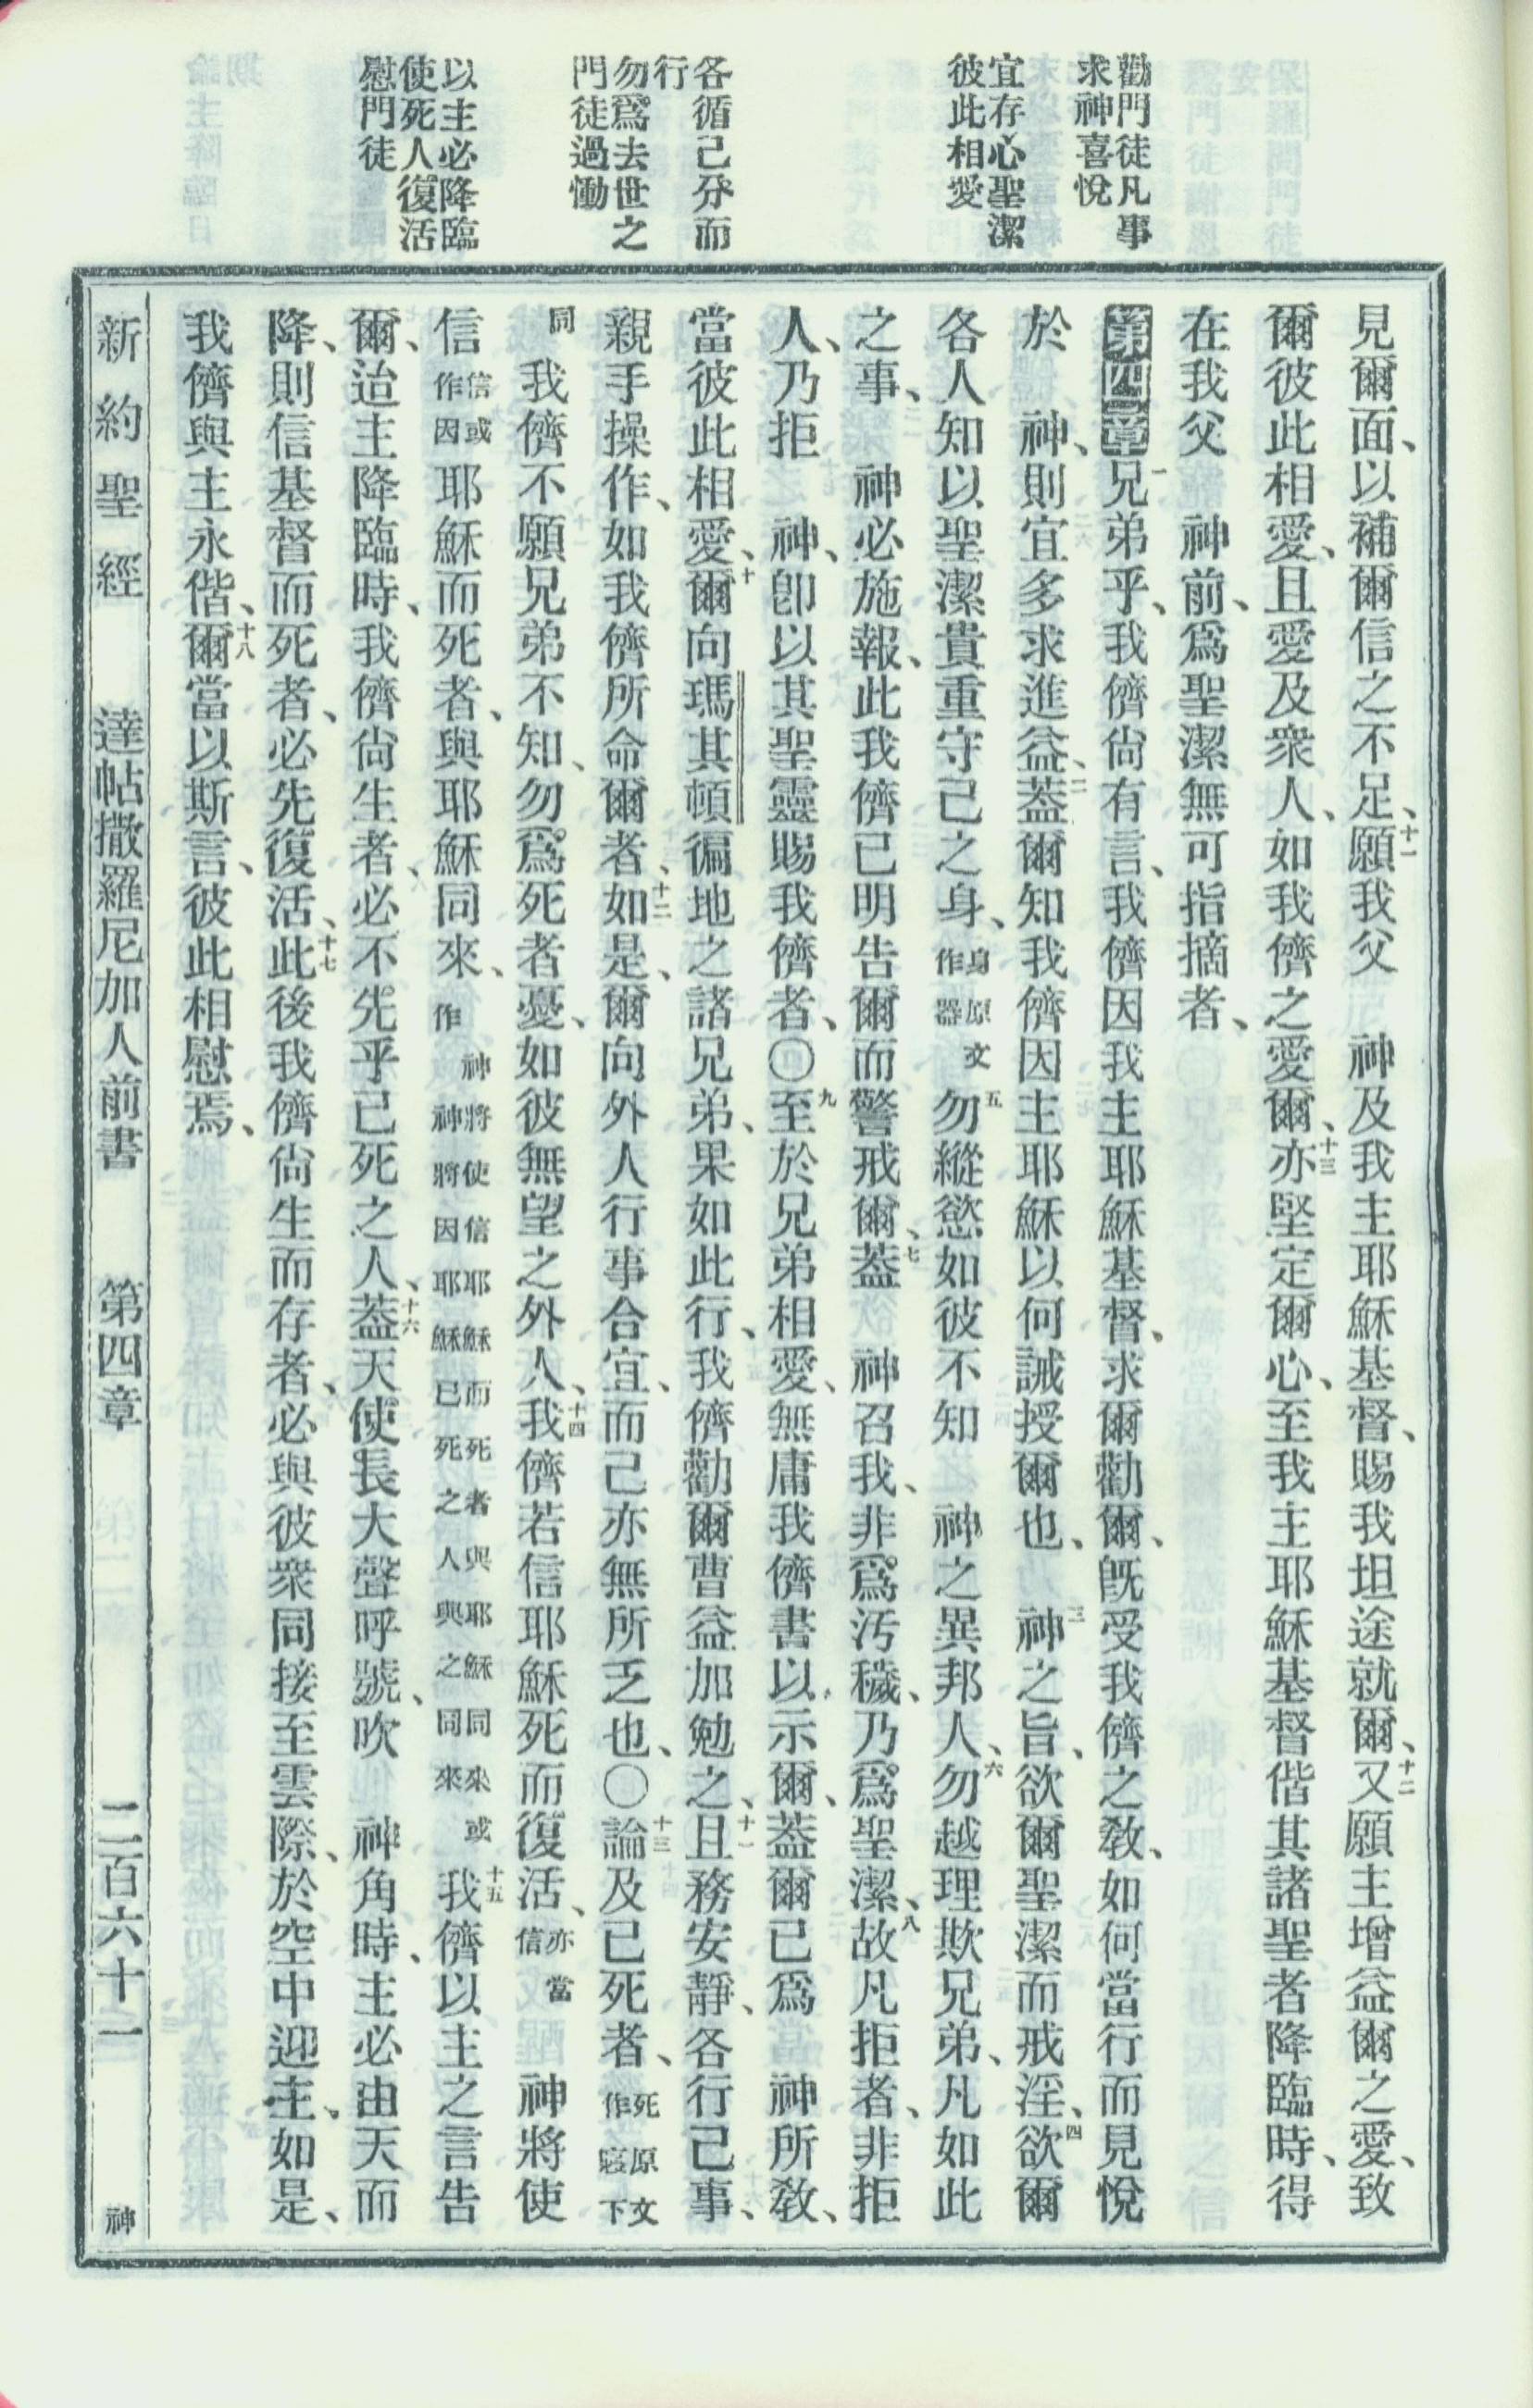 勸門徒凡事
求神喜悅
宜存心聖潔
彼此相愛
各循己分而
行
勿爲去世之
門徒過慟
以主必降臨
使死人復活
慰門徒
見爾面、以補爾信之不足、十一願我父　神及我主耶穌基督、賜我坦途就爾、十二又願主增益爾之愛、致
爾彼此相愛、且愛及衆人、如我儕之愛爾、十三亦堅定爾心、至我主耶穌基督偕其諸聖者降臨時、得
在我父　神前、爲聖潔無可指摘者、
第四章一兄弟乎、我儕尙有言、我儕因我主耶穌基督、求爾勸爾、旣受我儕之敎、如何當行而見悅
於　神、則宜多求進益、二蓋爾知我儕因主耶穌以何誡授爾也、三神之旨、欲爾聖潔而戒淫、四欲爾
各人知以聖潔貴重守己之身、身原文作器五勿縱慾如彼不知　神之異邦人、六勿越理欺兄弟、凡如此
之事、　神必施報、此我儕已明告爾而警戒爾、七蓋　神召我、非爲汚穢、乃爲聖潔、八故凡拒者、非拒
人、乃拒　神、卽以其聖靈賜我儕者、〇九至於兄弟相愛、無庸我儕書以示爾、蓋爾已爲　神所敎、
當彼此相愛、十爾向瑪其頓徧地之諸兄弟、果如此行、我儕勸爾曹益加勉之、十一且務安靜、各行己事、
親手操作、如我儕所命爾者、十二如是、爾向外人行事合宜、而己亦無所乏也、〇十三論及已死者、死原文作寢下
同　我儕不願兄弟不知、勿爲死者憂、如彼無望之外人、十四我儕若信耶穌死而復活、亦當信　神將使
信信或作因耶穌而死者、與耶穌同來、神將使信耶穌而死者與耶穌同來或作神將因耶穌已死之人與之同來十五我儕以主之言告
爾、迨主降臨時、我儕尙生者、必不先乎已死之人、十六蓋天使長大聲呼號、吹　神角時、主必由天而
降、則信基督而死者、必先復活、十七此後我儕尙生而存者、必與彼衆同接至雲際、於空中迎主、如是、
我儕與主永偕、十八爾當以斯言、彼此相慰焉、
新約聖經　達帖撒羅尼加人前書　第四章　二百六十一　神